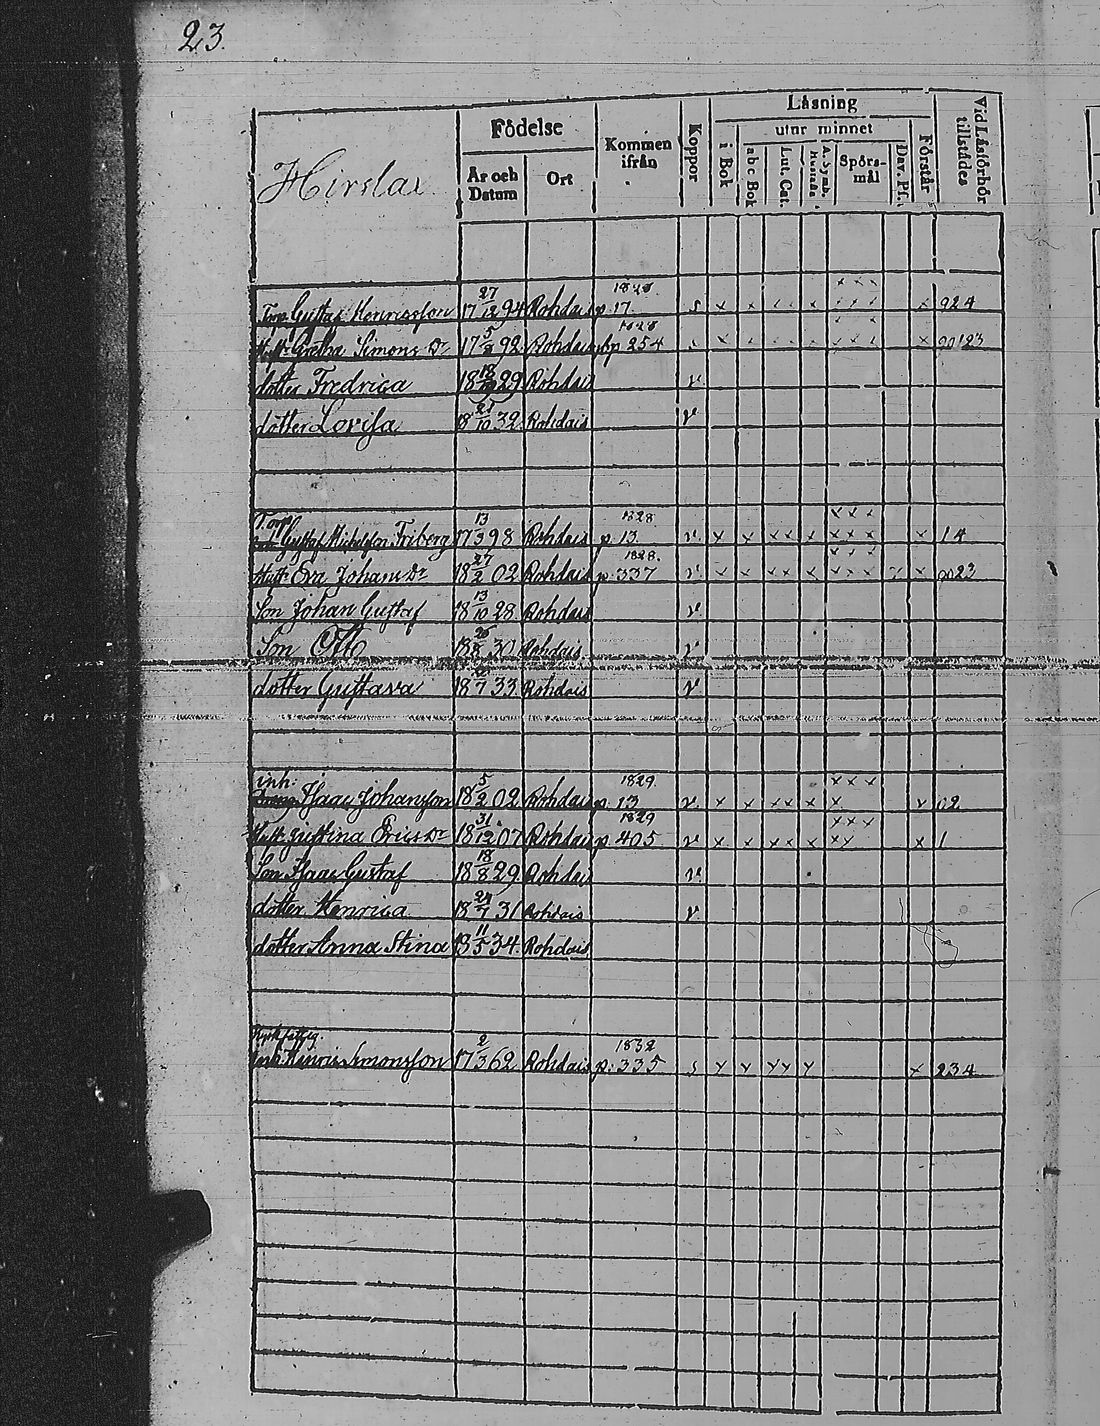 23.
Hirslax
Födelse
År och Datum
Ort
Kommen ifrån
Koppor
Läsning
i Bok
utur minnet
abc Bok
Lut. Cat.
Spörsmål
Dav. Ps.
Förstår
Vid Läsförhör tillstädes
1828
Torp. Gustaf Henricsson 17 27/12 94 Rohdais p. 17. s x x x x 924
1828
Hust. Gretha Simons Dr 17 92 Rohdais p 254 s x x x
dotter Fredrica 18 29 Rohdais v
dotter Lovisa 18 21/10 32 Rohdais v
Torp. 1828
Gustaf Michelsson Friberg 17 13/3 98 Rohdais p. 13. v x x xx x xxx x 14
1828.
Hust. Eva Johans Dr 18 27/2 02 Rohdais p. 337 v x x xx x xxx x x
Son Johan Gustaf 18 13/10 28 Rohdais v
Son Otto 18 30 Rohdais v
dotter Gustava 18 /7 33 Rohdais v
inh. 1829.
Isaac Johansson 18 5/2 02 Rohdais p. 13 v x x xx x x x
1829
Hust. Justina Erics Dr 18 31/12 07 Rohdais p 405 v x x xx x xx x 1
Son Isaac Gustaf 18 18/8 29 Rohdais v
dotter Henrica 18 /7 31 Rohdais v
dotter Anna Stina 18 11/5 34. Rohdais
1832
Henric Simonsson 17 2/3 62 Rohdais p. 335 s x x xx x x 234